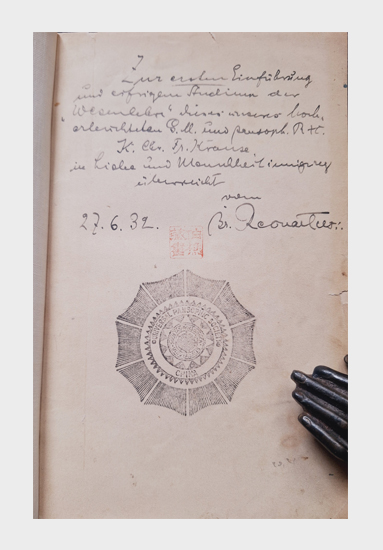 Zur ersten Einführung
und eifrigem Studium der
„Wesenlehre" dieses unseres hoch-
erleuchteten B. M. und pansoph. R+C.
K. Chr. Fr. Krause,
in Liebe und Menschheitinnigung
überreicht
vom
27.6.32. Br.